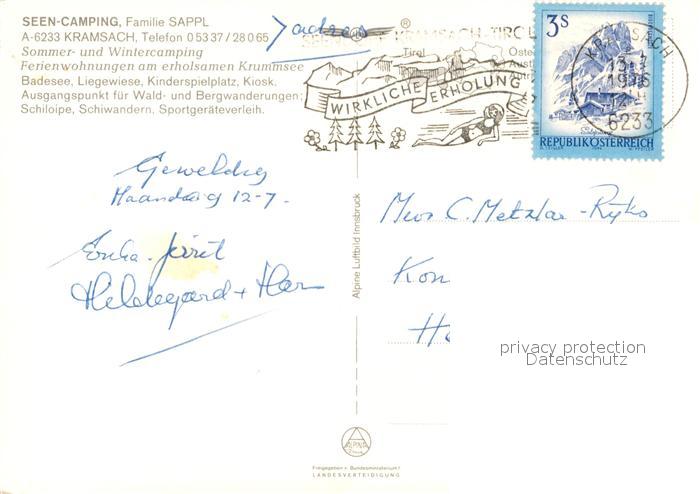 SEEN-CAMPING, Familie SAPPL
A-6233 KRAMSACH, Telefon 0 53 37 / 28 0 65
Sommer- und Wintercamping
Ferienwohnungen am erholsamen Krummsee
Badesee, Liegewiese, Kinderspielplatz, Kiosk.
Ausgangspunkt für Wald- und Bergwanderungen;
Schiloipe, Schiwandern, Sportgeräteverleih.
adres
KRAMSACH-TIROL
Tirol
WIRKLICHE ERHOLUNG
3S
REPUBLIK ÖSTERREICH
KRAMSACH
6233
Geweldig
Maandag 12-7.
Hildegard +
Alpine Luftbild Innsbruck
Mevr C. Metzlar-Ryks
Kon
privacy protection
Datenschutz
ALPINE
Freigegeben v. Bundesministerium f.
LANDESVERTEIDIGUNG